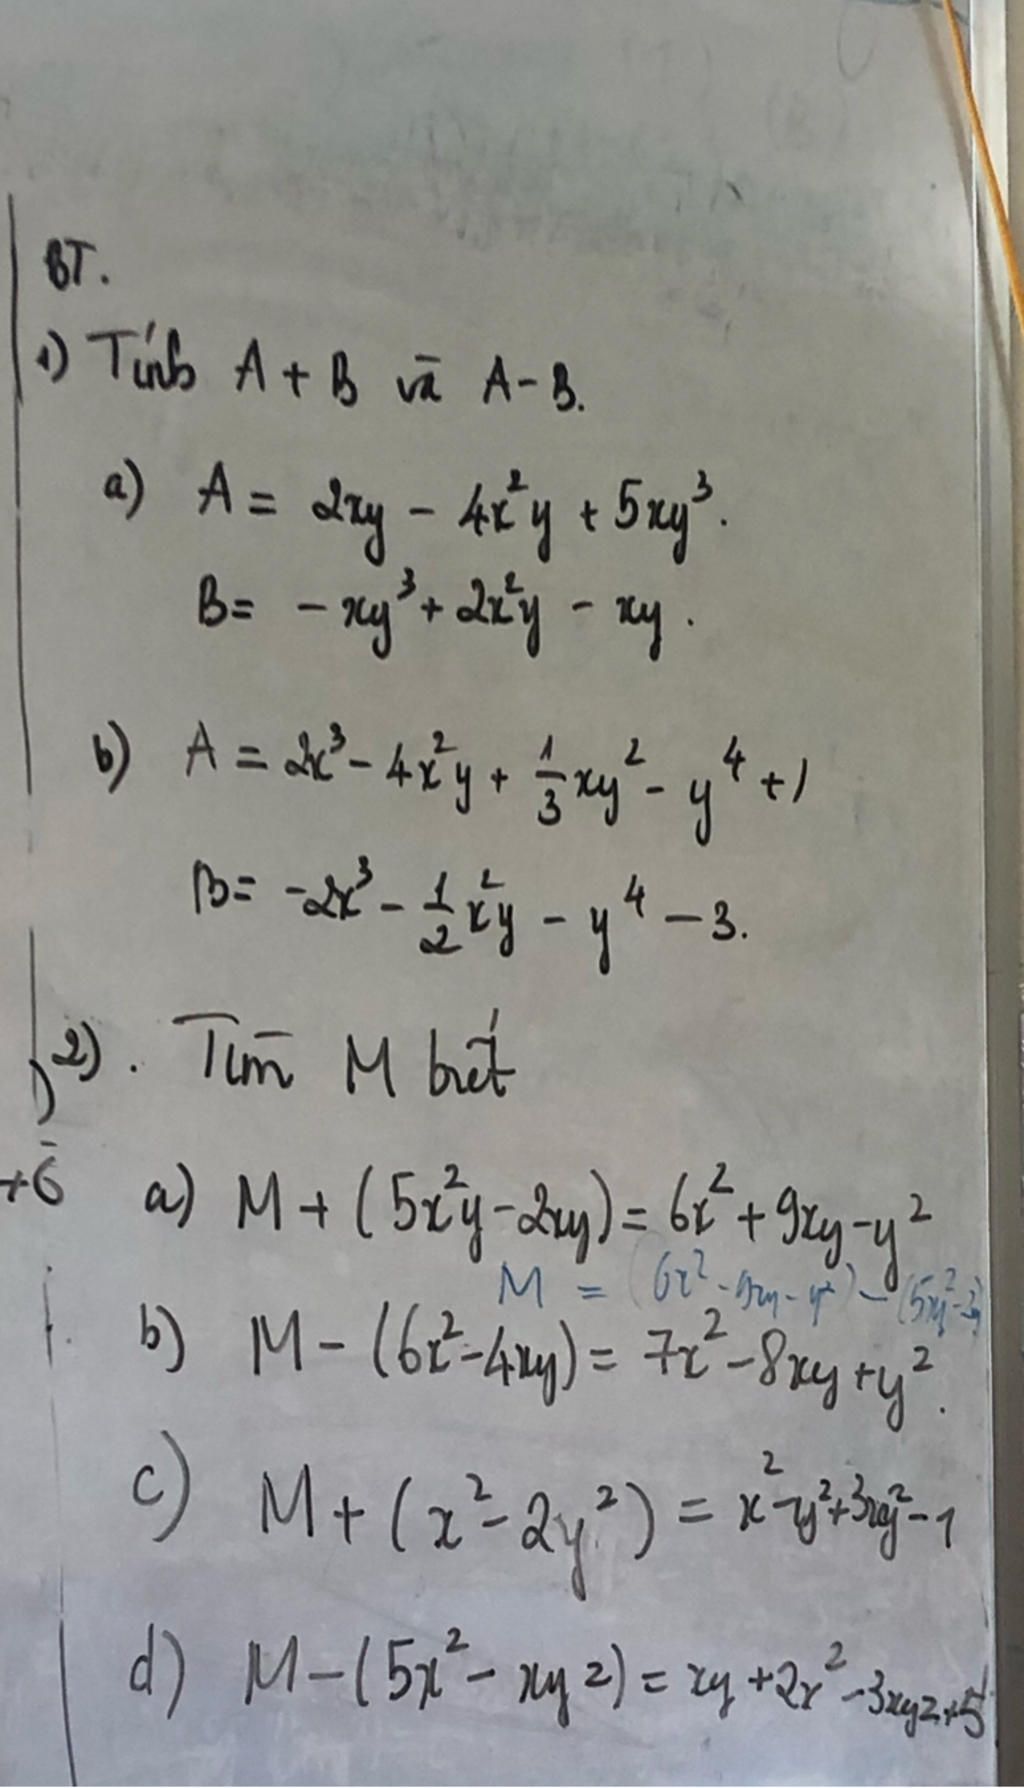 BT.
1) Tính A + B và A - B.
a) A = 2xy - 4x²y + 5xy³.
B = - xy³ + 2x²y - xy.
b) A = 2x³ - 4x²y + 1/3 xy² - y⁴ + 1
B = -2x³ - 1/2 x²y - y⁴ - 3.
2). Tìm M biết
+6
a) M + (5x²y - 2xy) = 6x² + 9xy - y²
M = (6x² - 9xy - y²) - (5xy² - 2
b) M - (6x² - 4xy) = 7x² - 8xy + y².
c) M + (x² - 2y²) = x² - y² + 3xy² - 1
d) M - (5x² - xyz) = xy + 2x² - 3xyz + 5